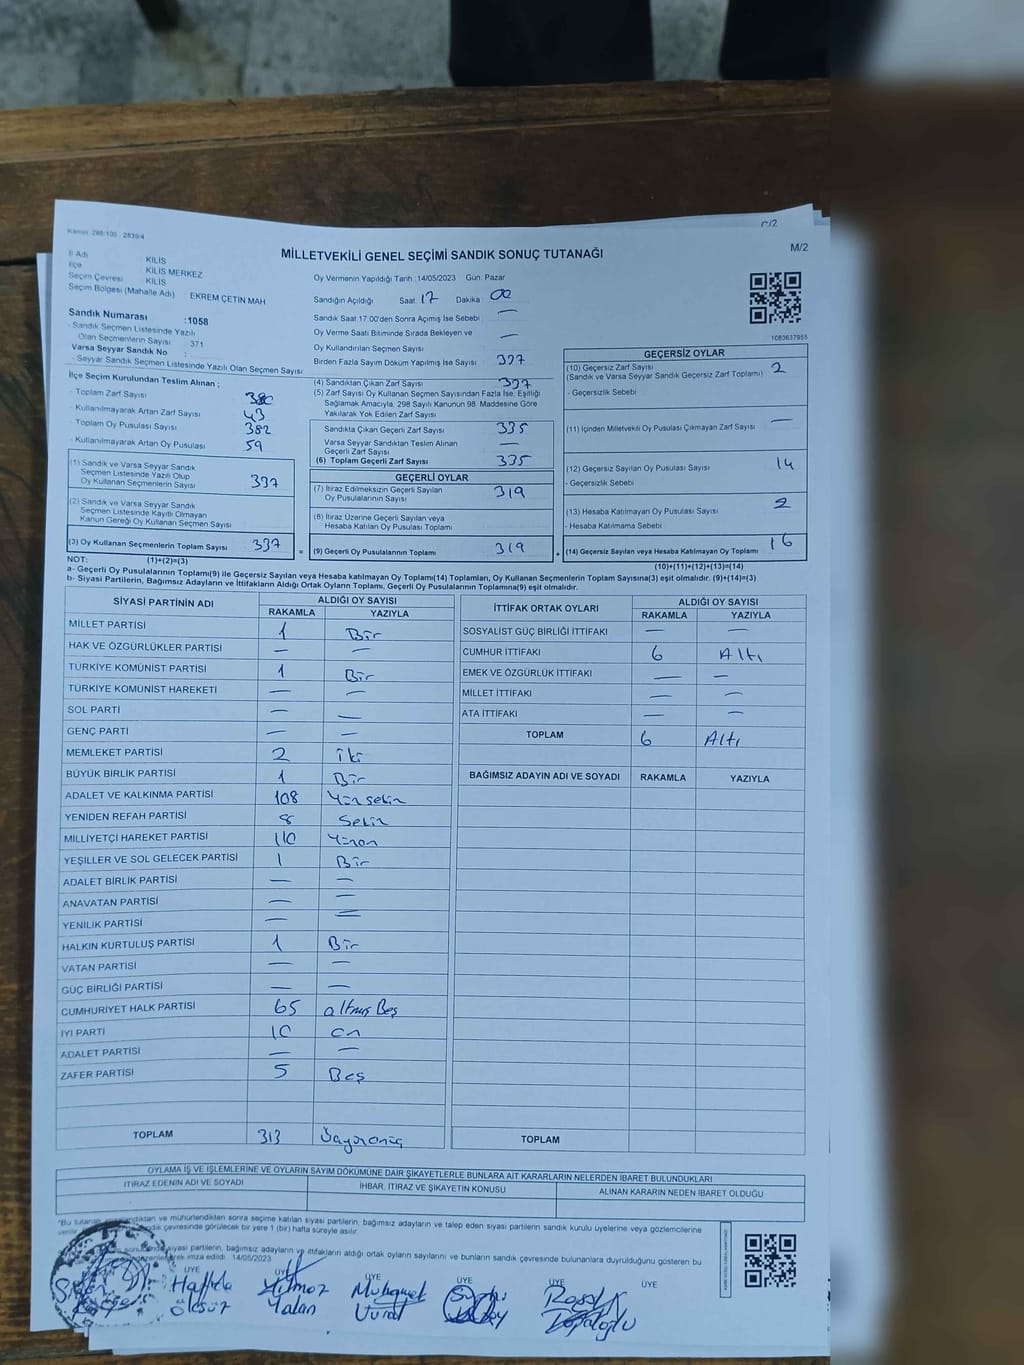 Kanun: 298/105 2839/4
C/2
M/2
MİLLETVEKİLİ GENEL SEÇİMİ SANDIK SONUÇ TUTANAĞI
İl Adı KİLİS
İlçe KİLİS MERKEZ
Seçim Çevresi KİLİS
Seçim Bölgesi (Mahalle Adı) : EKREM ÇETİN MAH.
Sandık Numarası : 1058
- Sandık Seçmen Listesinde Yazılı
Olan Seçmenlerin Sayısı : 371
Varsa Seyyar Sandık No :
- Seyyar Sandık Seçmen Listesinde Yazılı Olan Seçmen Sayısı
Oy Vermenin Yapıldığı Tarih : 14/05/2023 Gün: Pazar
Sandığın Açıldığı Saat 17 Dakika 00
Sandık Saat 17:00'den Sonra Açılmış İse Sebebi —
Oy Verme Saati Bitiminde Sırada Bekleyen ve
Oy Kullandırılan Seçmen Sayısı —
Birden Fazla Sayım Döküm Yapılmış İse Sayısı 337
1083637955
İlçe Seçim Kurulundan Teslim Alınan :
- Toplam Zarf Sayısı 380
- Kullanılmayarak Artan Zarf Sayısı 43
- Toplam Oy Pusulası Sayısı 382
- Kullanılmayarak Artan Oy Pusulası 59
(1) Sandık ve Varsa Seyyar Sandık
Seçmen Listesinde Yazılı Olup
Oy Kullanan Seçmenlerin Sayısı 337
(2) Sandık ve Varsa Seyyar Sandık
Seçmen Listesinde Kayıtlı Olmayan
Kanun Gereği Oy Kullanan Seçmen Sayısı
(3) Oy Kullanan Seçmenlerin Toplam Sayısı 337
(1)+(2)=(3)
(4) Sandıktan Çıkan Zarf Sayısı 337
(5) Zarf Sayısı Oy Kullanan Seçmen Sayısından Fazla İse, Eşitliği
Sağlamak Amacıyla, 298 Sayılı Kanunun 98. Maddesine Göre
Yakılarak Yok Edilen Zarf Sayısı
Sandıkta Çıkan Geçerli Zarf Sayısı 335
Varsa Seyyar Sandıktan Teslim Alınan
Geçerli Zarf Sayısı —
(6) Toplam Geçerli Zarf Sayısı 335
GEÇERLİ OYLAR
(7) İtiraz Edilmeksizin Geçerli Sayılan
Oy Pusulalarının Sayısı 319
(8) İtiraz Üzerine Geçerli Sayılan veya
Hesaba Katılan Oy Pusulası Toplamı
= (9) Geçerli Oy Pusulalarının Toplamı 319
GEÇERSİZ OYLAR
(10) Geçersiz Zarf Sayısı 2
(Sandık ve Varsa Seyyar Sandık Geçersiz Zarf Toplamı)
- Geçersizlik Sebebi
(11) İçinden Milletvekili Oy Pusulası Çıkmayan Zarf Sayısı —
(12) Geçersiz Sayılan Oy Pusulası Sayısı 14
- Geçersizlik Sebebi
(13) Hesaba Katılmayan Oy Pusulası Sayısı 2
- Hesaba Katılmama Sebebi
+ (14) Geçersiz Sayılan veya Hesaba Katılmayan Oy Toplamı 16
(10)+(11)+(12)+(13)=(14)
NOT:
a- Geçerli Oy Pusulalarının Toplamı(9) ile Geçersiz Sayılan veya Hesaba katılmayan Oy Toplamı(14) Toplamları, Oy Kullanan Seçmenlerin Toplam Sayısına(3) eşit olmalıdır. (9)+(14)=(3)
b- Siyasi Partilerin, Bağımsız Adayların ve İttifakların Aldığı Ortak Oyların Toplamı, Geçerli Oy Pusulalarının Toplamına(9) eşit olmalıdır.
SİYASİ PARTİNİN ADI ALDIĞI OY SAYISI
RAKAMLA YAZIYLA
MİLLET PARTİSİ 1 Bir
HAK VE ÖZGÜRLÜKLER PARTİSİ — —
TÜRKİYE KOMÜNİST PARTİSİ 1 Bir
TÜRKİYE KOMÜNİST HAREKETİ — —
SOL PARTİ — —
GENÇ PARTİ — —
MEMLEKET PARTİSİ 2 iki
BÜYÜK BİRLİK PARTİSİ 1 Bir
ADALET VE KALKINMA PARTİSİ 108 Yüzsekiz
YENİDEN REFAH PARTİSİ 8 Sekiz
MİLLİYETÇİ HAREKET PARTİSİ 110 Yüzon
YEŞİLLER VE SOL GELECEK PARTİSİ 1 Bir
ADALET BİRLİK PARTİSİ — —
ANAVATAN PARTİSİ — —
YENİLİK PARTİSİ — —
HALKIN KURTULUŞ PARTİSİ 1 Bir
VATAN PARTİSİ — —
GÜÇ BİRLİĞİ PARTİSİ — —
CUMHURİYET HALK PARTİSİ 65 altmış Beş
İYİ PARTİ 10 on
ADALET PARTİSİ — —
ZAFER PARTİSİ 5 Beş
TOPLAM 313 Üçyüzonüç
İTTİFAK ORTAK OYLARI ALDIĞI OY SAYISI
RAKAMLA YAZIYLA
SOSYALİST GÜÇ BİRLİĞİ İTTİFAKI — —
CUMHUR İTTİFAKI 6 Altı
EMEK VE ÖZGÜRLÜK İTTİFAKI — —
MİLLET İTTİFAKI — —
ATA İTTİFAKI — —
TOPLAM 6 Altı
BAĞIMSIZ ADAYIN ADI VE SOYADI RAKAMLA YAZIYLA
TOPLAM
OYLAMA İŞ VE İŞLEMLERİNE VE OYLARIN SAYIM DÖKÜMÜNE DAİR ŞİKAYETLERLE BUNLARA AİT KARARLARIN NELERDEN İBARET BULUNDUKLARI
İTİRAZ EDENİN ADI VE SOYADI İHBAR, İTİRAZ VE ŞİKAYETİN KONUSU ALINAN KARARIN NEDEN İBARET OLDUĞU
"Bu tutanak ve mühürlendikten sonra seçime katılan siyasi partilerin, bağımsız adayların ve talep eden siyasi partilerin sandık kurulu üyelerine veya gözlemcilerine
çevresinde görülecek bir yere 1 (bir) hafta süreyle asılır.
siyasi partilerin, bağımsız adayların ve ittifakların aldığı ortak oyların sayılarını ve bunların sandık çevresinde bulunanlara duyurulduğunu gösteren bu
imza edildi. 14/05/2023
ÜYE ÜYE ÜYE ÜYE ÜYE ÜYE
Yılmaz
Yalan
Vural